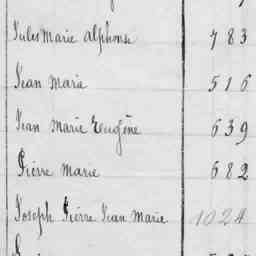 Jules Marie Alphonse 783
Jean Marie 516
Jean Marie Eugène 639
Pierre Marie 682
Joseph Pierre Jean Marie 1024